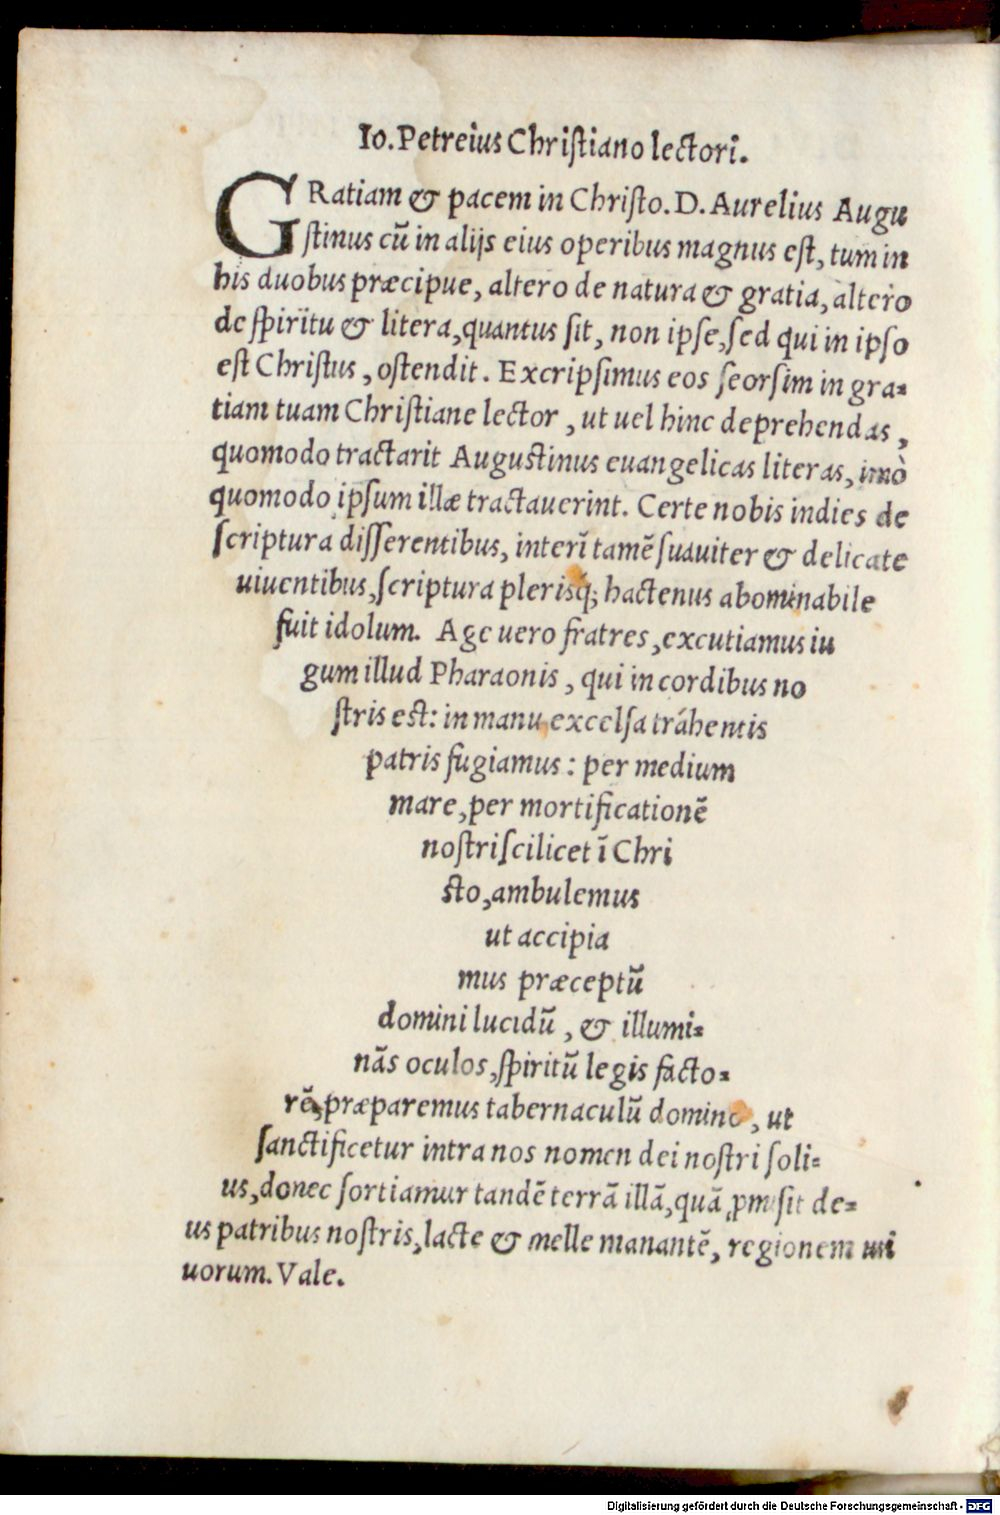 Io. Petreius Christiano lectori.
GRatiam & pacem in Christo. D. Aurelius Augu
stinus cū in alijs eius operibus magnus est, tum in
his duobus præcipue, altero de natura & gratia, altero
de spiritu & litera, quantus sit, non ipse, sed qui in ipso
est Christus, ostendit. Excripsimus eos seorsim in gra-
tiam tuam Christiane lector, ut uel hinc deprehendas,
quomodo tractarit Augustinus euangelicas literas, imò
quomodo ipsum illæ tractauerint. Certe nobis indies de
scriptura disserentibus, interī tamē suauiter & delicate
uiuentibus, scriptura plerisq; hactenus abominabile
fuit idolum. Age uero fratres, excutiamus iu
gum illud Pharaonis, qui in cordibus no
stris est: in manu excelsa trahentis
patris fugiamus: per medium
mare, per mortificationē
nostri scilicet ī Chri
sto, ambulemus
ut accipia
mus præceptū
domini lucidū, & illumi-
nās oculos, spiritū legis facto-
rē, præparemus tabernaculū domino, ut
sanctificetur intra nos nomen dei nostri soli-
us, donec sortiamur tandē terrā illā, quā ꝓmisit de-
us patribus nostris, lacte & melle manantē, regionem ui
uorum. Vale.
Digitalisierung gefördert durch die Deutsche Forschungsgemeinschaft - DFG